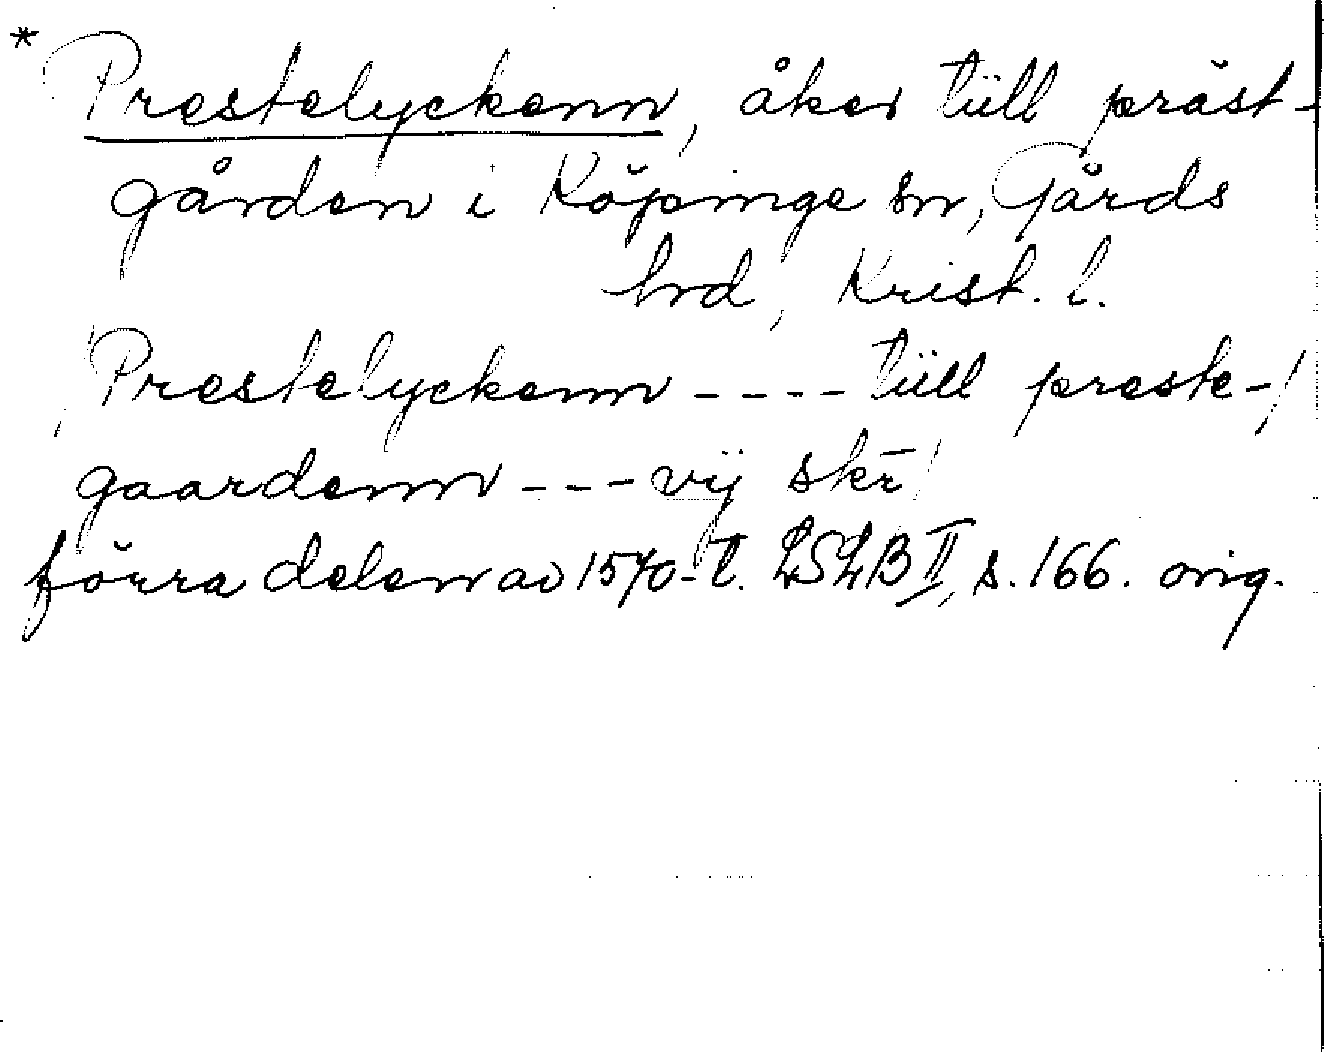 * Prestelyckenn, åker till präst-
gården i Köpinge sn, Gärds
hrd, Krist. l.
/Prestelyckenn ---- tüll preste-/
gaardenn --- vij skr̄/
förra delen av 1570-t. LSLB II, s. 166. orig.